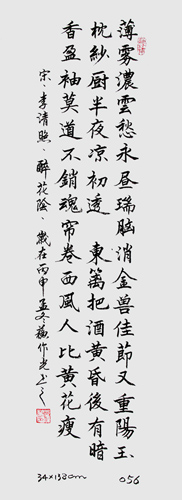 薄雾濃雲愁永昼瑞脑消金兽佳節又重陽玉
枕紗厨半夜凉初透 東篱把酒黄昏後有暗
香盈袖莫道不銷魂帘卷西風人比黄花瘦
宋·李清照·醉花陰·歲在丙申孟冬作光书之
34×138cm 056